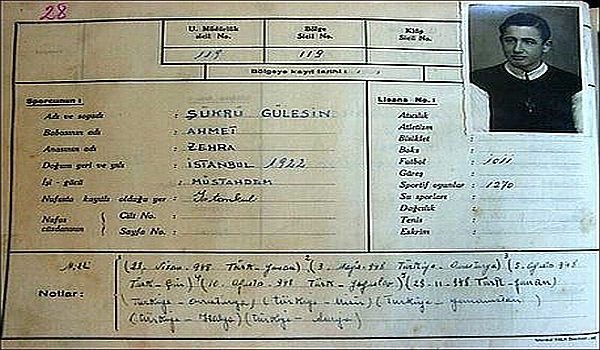 28
U. Müdürlük Sicil No. Bölge Sicil No. Klüp Sicil No.
119 119
Bölgeye kayıt tarihi : / /
Sporcunun :
Adı ve soyadı : ŞÜKRÜ GÜLESİN
Babasının adı : AHMET
Anasının adı : ZEHRA
Doğum yeri ve yılı : İSTANBUL 1922
İşi - gücü : MÜSTAHDEM
Nufusta kayıtlı olduğu yer : İstanbul
Nufus cüzdanının
Cilt No. :
Sayfa No. :
Lisans No. :
Atıcılık :
Atletizm :
Bisiklet :
Boks :
Futbol : 1011
Güreş :
Sportif oyunlar : 1270
Su sporları :
Dağcılık :
Tenis :
Eskrim :
Notlar :
1 (23. Nisan. 948 Türk - Yunan) 2 (3. Mayıs. 948 Türkiye - Avusturya) 3 (5. Ağusto 948
Türk - Çin) (10. Ağusto. 948 Türk - Yugoslav) (28-11-948 Türk - Yunan)
(Türkiye - Avusturya) (Türkiye - Mısır) (Türkiye - Yunanistan)
(Türkiye - İtalya) (Türkiye -